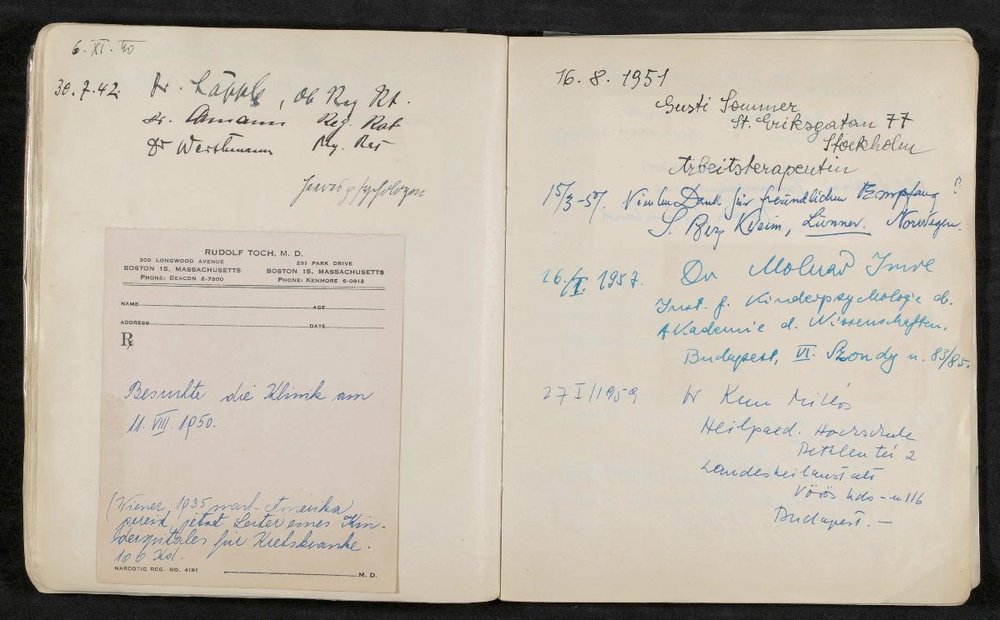 6. XI. 40
30.7.42. Dr. Läpple, Ob Reg Rt.
Dr. Amann Reg. Rat
Dr Werthmann Reg. Rat
RUDOLF TOCH, M. D.
300 LONGWOOD AVENUE 231 PARK DRIVE
BOSTON 15, MASSACHUSETTS BOSTON 15, MASSACHUSETTS
PHONE: BEACON 2-7800 PHONE: KENMORE 6-0912
NAME AGE
ADDRESS DATE
℞
Besuchte die Klinik am
11. VIII. 1950.
(Wiener, 1935 nach Amerika
jetzt Leiter eines Kin-
derspitales für Krebskranke.
NARCOTIC REG. NO. 4191 M. D.
16.8.1951
Gusti Sommer
St. Eriksgatan 77
Stockholm
Arbeitsterapeutin
15/3-57. Vielen Dank für freundlichen Empfang
S. Berg Kveim, Lunner. Norwegen.
26./I. 1957. Dr Molnár Imre
Inst. f. Kinderpsychologie d.
Akademie d. Wissenschaften.
Budapest, VI. Szondy u. 83/85.
27 I/1959 Dr Kun Miklós
Heilpaed. Hochschule
Bethlen tér 2
Landesheilanstalt
Vörös hds-u 116
Budapest. —